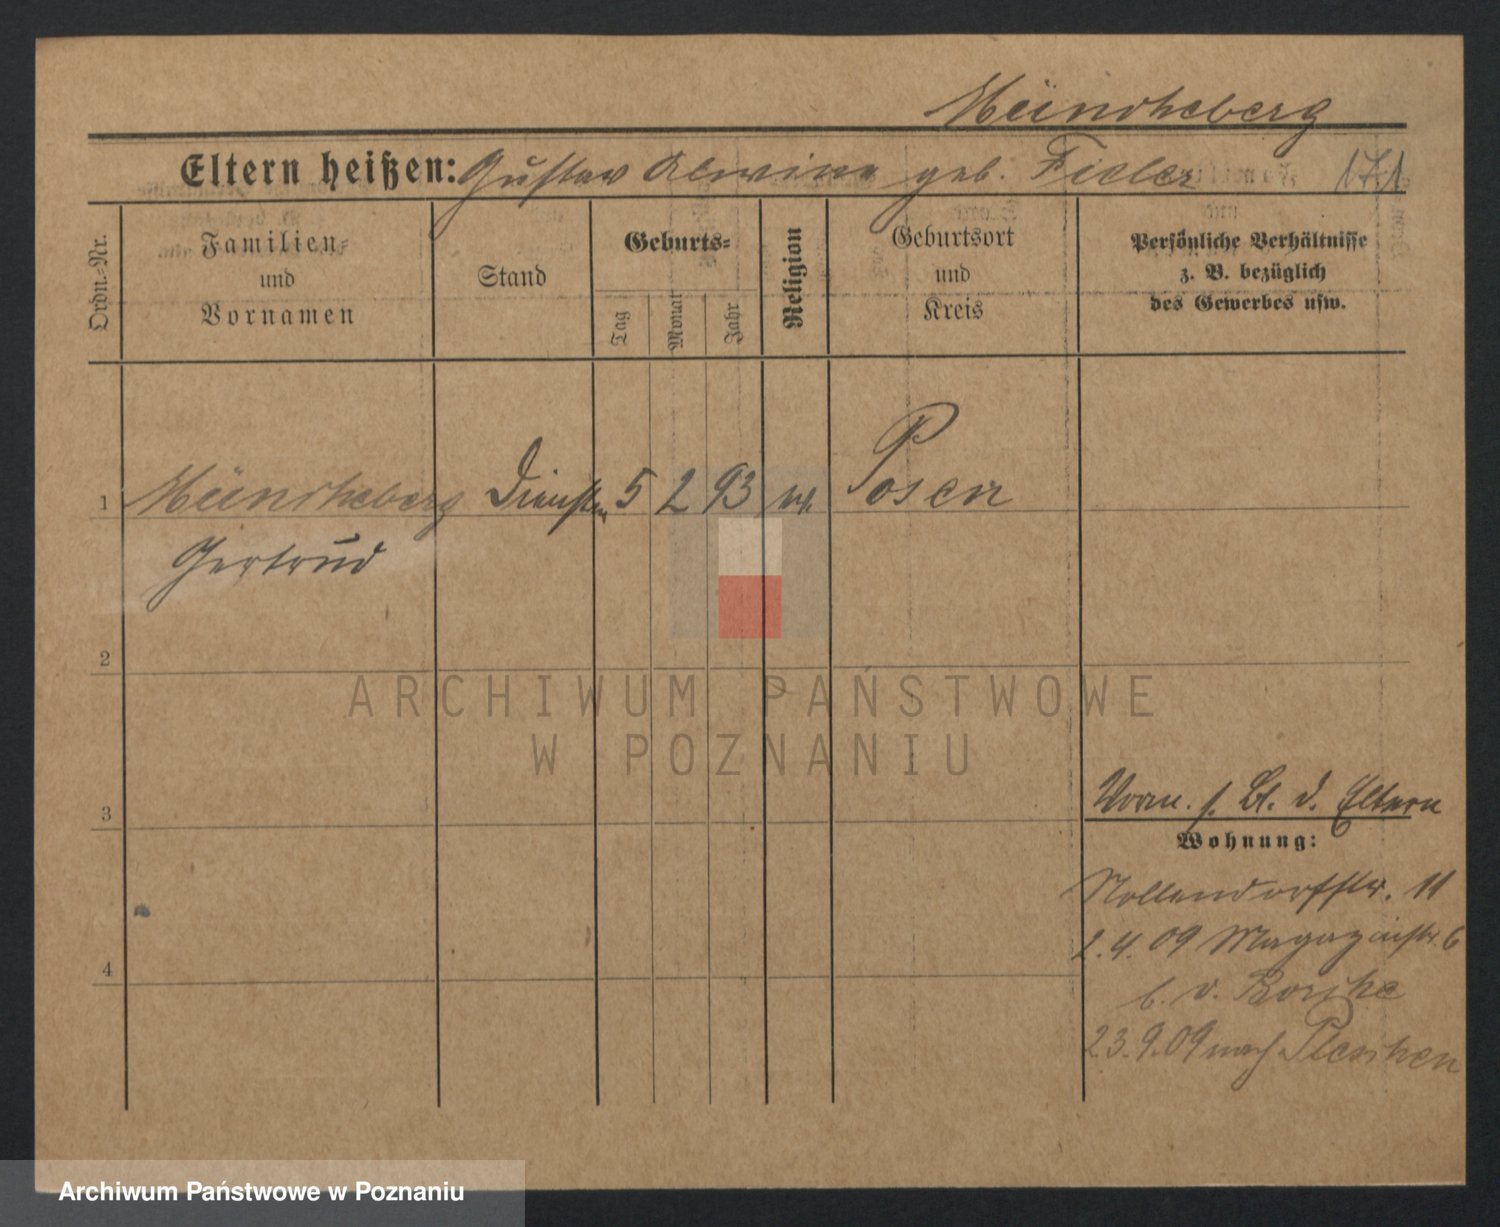 Müncheberg
Eltern heißen: Gustav Alwine geb. Fieler 171
Ordn.-Nr.
Familien-
und
Vornamen
Stand
Geburts-
Tag
Monat
Jahr
Religion
Geburtsort
und
Kreis
Persönliche Verhältnisse
z. B. bezüglich
des Gewerbes usw.
1 Müncheberg Dienstm 5 2 93 ev. Posen
Gertrud
2
ARCHIWUM PAŃSTWOWE
W POZNANIU
3
Vorm. s. Bl. d. Eltern
Wohnung:
Nollendorfstr. 11
2.4.09 Magazinstr. 6
b. v.
4
23.9.09 nach Pleschen
Archiwum Państwowe w Poznaniu